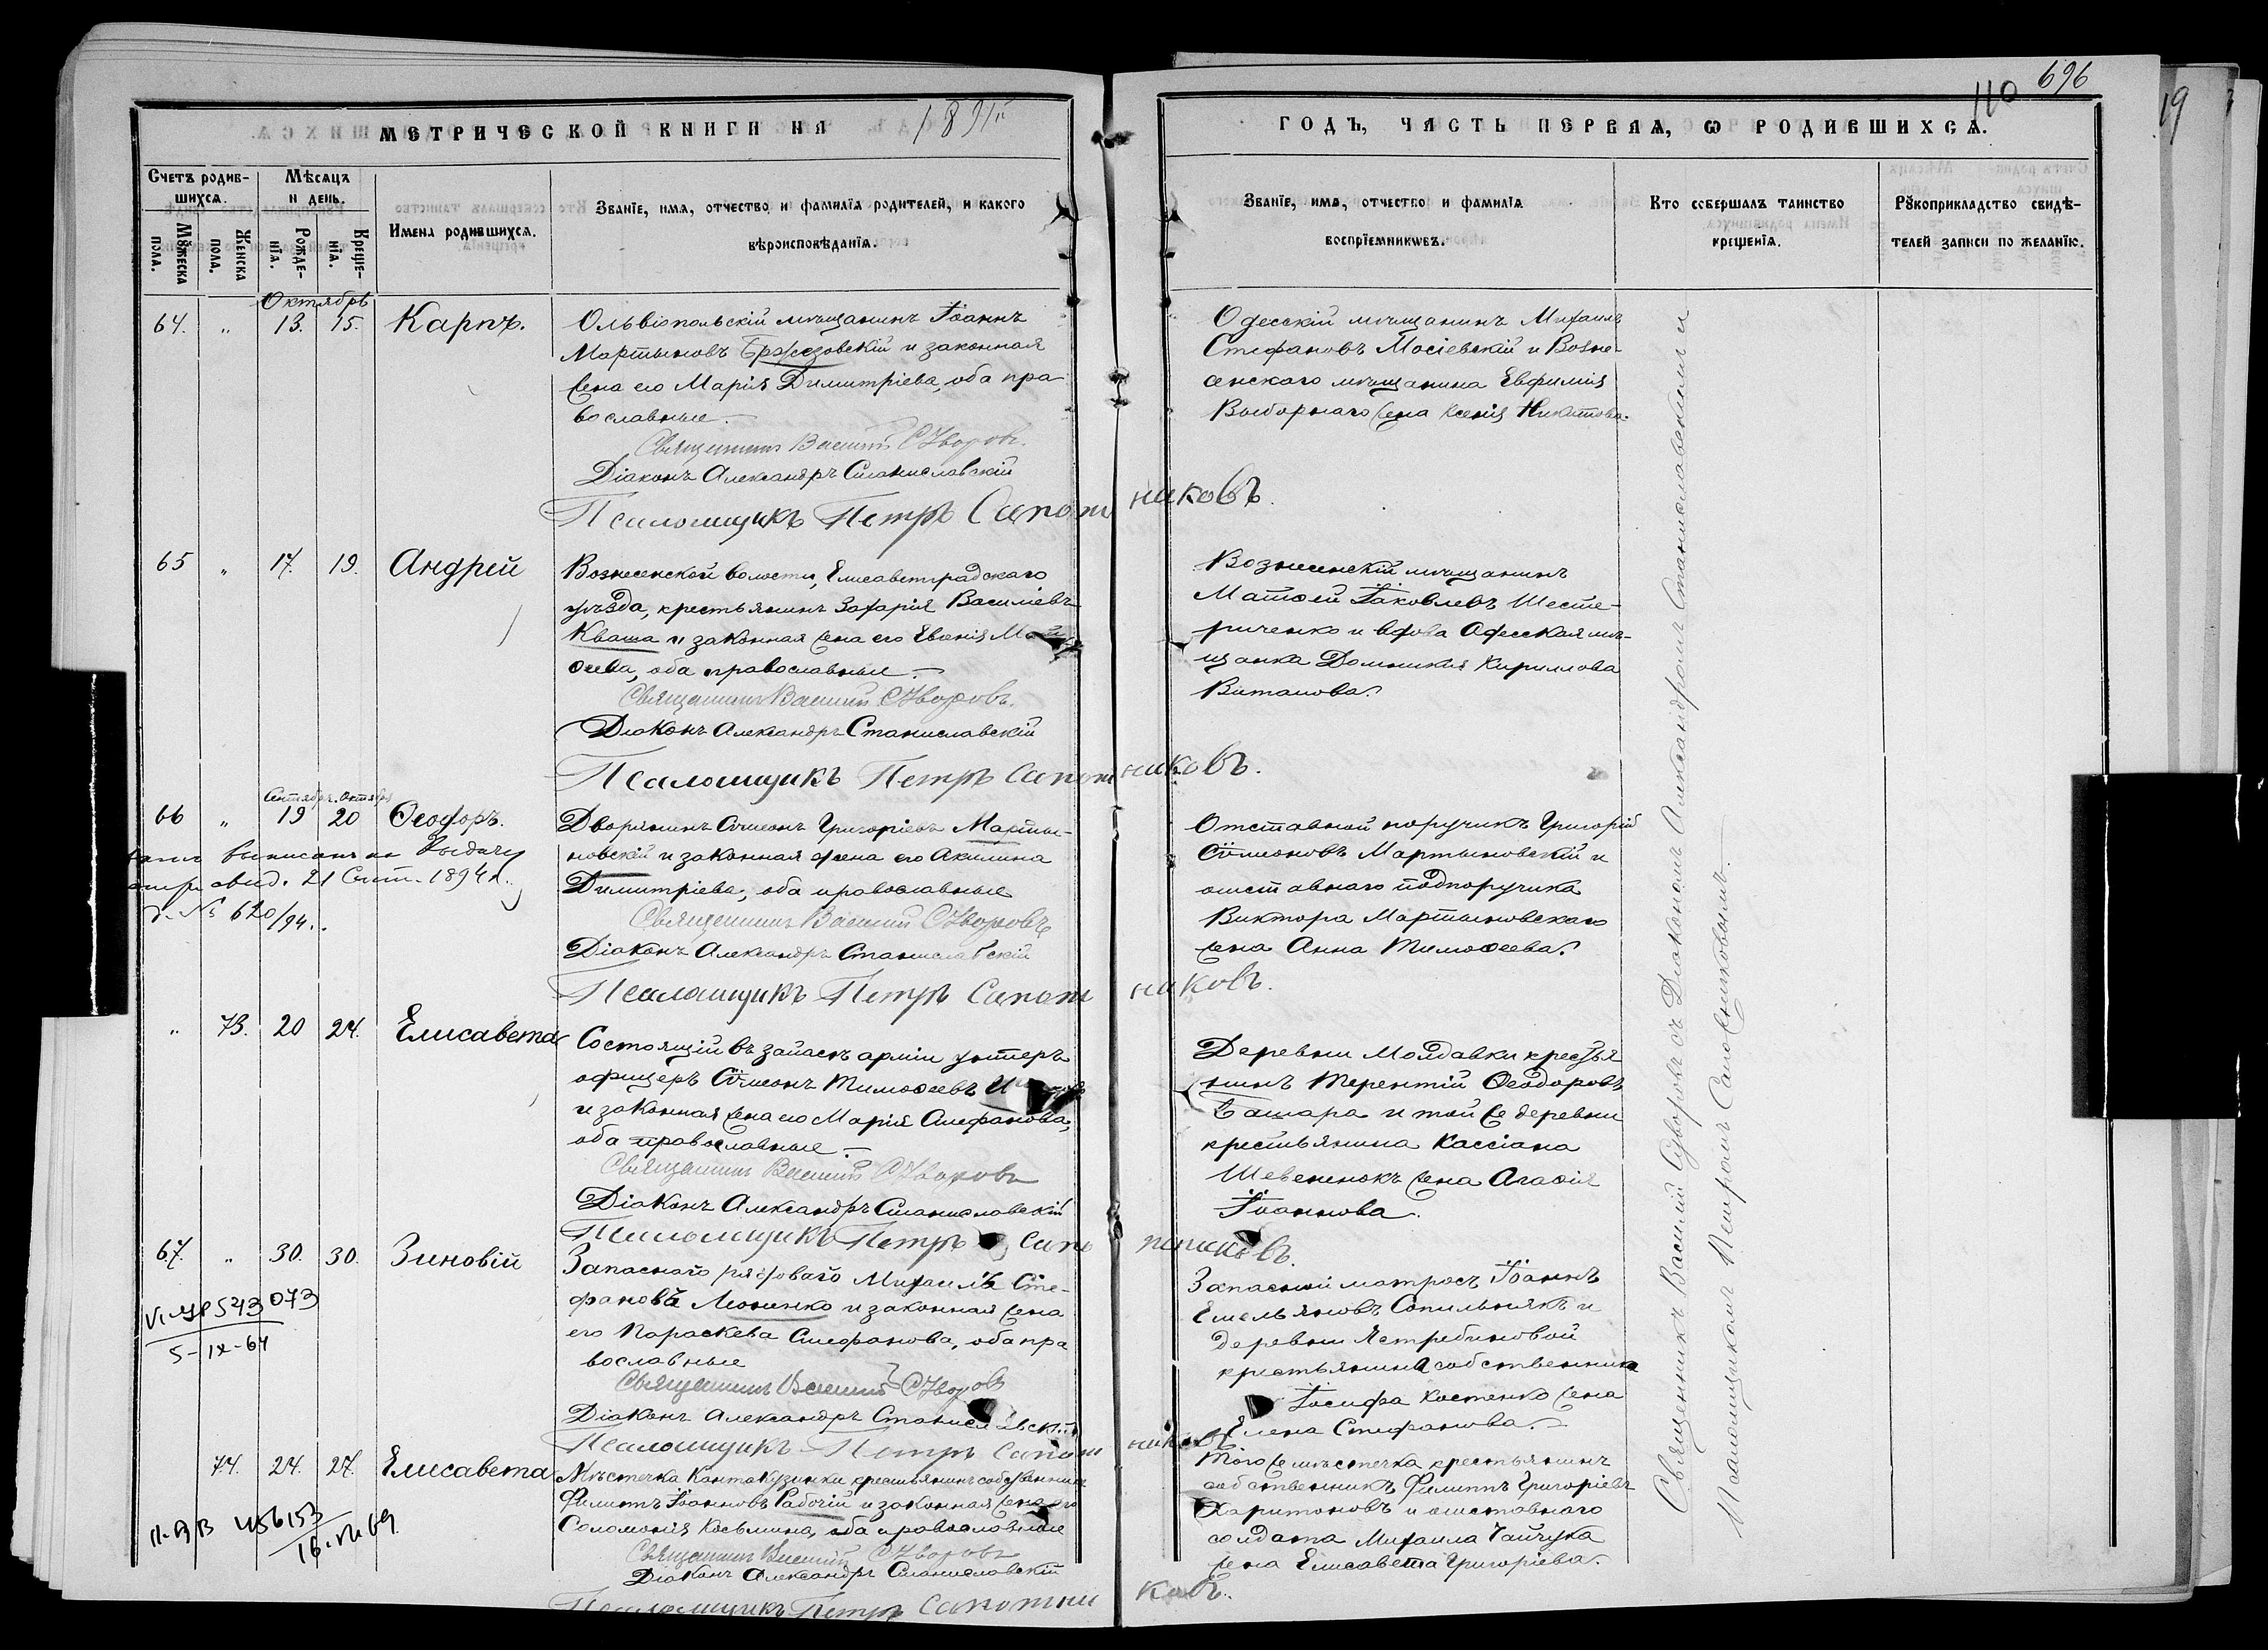 696
110
19
МЕТРИЧЕСКОЙ КНИГИ НА 1891й
ГОДЪ, ЧАСТЬ ПЕРВАЯ, Ѡ РОДИВШИХСЯ.
Счетъ родив-
шихся.
Мꙋжеска
пола.
Женска
пола.
Мѣсяцъ
и день.
Рожде-
нія.
Креще-
нія.
Имена родившихся.
Званіе, имя, отчество, и фамилія родителей, и какого
вѣроисповѣданія.
Званіе, имя, отчество и фамилія
воспріемниковъ.
Кто совершалъ таинство
крещенія.
Рꙋкоприкладство свидѣ-
телей записи по желанію.
Октябрь
64. " 13. 15. Карпъ.
Ольвіопольскій мѣщанинъ Іоаннъ
Мартыновъ Бржезовскій и законная
жена его Марія Димитріева, оба пра
вославные.
Священникъ Василій Суворовъ.
Діаконъ Александръ Станиславскій
Псаломщикъ Петръ Сапожниковъ.
Одесскій мѣщанинъ Михаилъ
Стефановъ Мосіевскій и Возне-
сенскаго мѣщанина Евфимія
Выборнаго жена Ксенія Никитова.
65 " 17. 19. Андрей
Вознесенской волости, Елисаветградскаго
уѣзда, крестьянинъ Захарія Василіевъ
Кваша и законная жена его Евѳнія
ѳеева, оба православные.
Священникъ Василій Суворовъ.
Діаконъ Александръ Станиславскій
Псаломщикъ Петръ Сапожниковъ.
Вознесенскій мѣщанинъ
Матѳей Іаковлевъ Шесте-
риченко и вдова Одесская мѣ-
щанка Домникія Кириллова
Витанова.
Сентябрь. Октябрь
66 " 19 20 Ѳеодоръ.
выписанъ на выдачу
свид. 21 Сент. 1894 г.
д. № 620/94.
Дворянинъ Сѵмеонъ Григоріевъ Марты-
новскій и законная жена его Акилина
Димитріева, оба православные
Священникъ Василій Суворовъ
Діаконъ Александръ Станиславскій
Псаломщикъ Петръ Сапожниковъ.
Отставной поручикъ Григорій
Сѵмеоновъ Мартыновскій и
отставнаго подпоручика
Виктора Мартыновскаго
жена Анна Тимоѳеева.
" 73. 20 24. Елисавета
Состоящій въ запасѣ арміи унтеръ
офицеръ Сѵмеонъ Тимоѳеевъ
и законная жена его Марія Стефанова,
оба православные.
Священникъ Василій Суворовъ
Діаконъ Александръ Станиславскій
Псаломщикъ Петръ Сапожниковъ.
Деревни Молдавки крестья
нинъ Терентій Ѳеодоровъ
Башара и той же деревни
крестьянина Кассіана
Шевененокъ жена Агаѳія
Іоаннова.
67. " 30. 30. Зиновій
543073
5-IX-64
Запаснаго рядоваго Михаилъ Сте-
фановъ Моненко и законная жена
его Параскева Стефанова, оба пра
вославные
Священникъ Василій Суворовъ
Діаконъ Александръ Станиславскій
Псаломщикъ Петръ Сапожниковъ
Запасной матросъ Іоаннъ
Емельяновъ Сопильнякъ и
деревни Ястребиновой
крестьянина собственника
Іосифа Костенко жена
Елена Стефанова.
74. 24. 27. Елисавета
II-ЯВ 456153
16.VII.69
Мѣстечка Кантакузинки крестьянинъ собственникъ
Филиппъ Іоанновъ Рабочій и законная жена его
Соломонія Косьмина, оба православные
Священникъ Василій Суворовъ
Діаконъ Александръ Станиславскій
Псаломщикъ Петръ Сапожниковъ.
Того же мѣстечка крестьянинъ
собственникъ Филиппъ Григоріевъ
Харитоновъ и отставнаго
солдата Михаила Чайчука
жена Елисавета Григоріева.
Священникъ Василій Суворовъ съ Діакономъ Александромъ Станиславскимъ и
Псаломщикомъ Петромъ Сапожниковымъ.